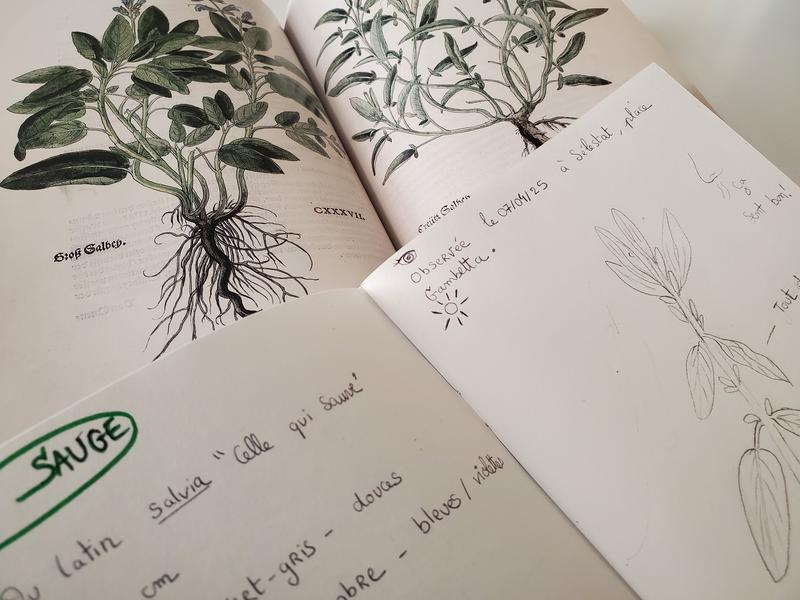 Groß Salbey.
CXXXVII.
Observée le 07/04/25 à Sélestat, place
Gambetta.
ça
sent bon!
SAUGE
Du latin salvia "celle qui sauve"
cm
- gris - doucas
- bleues / violettes